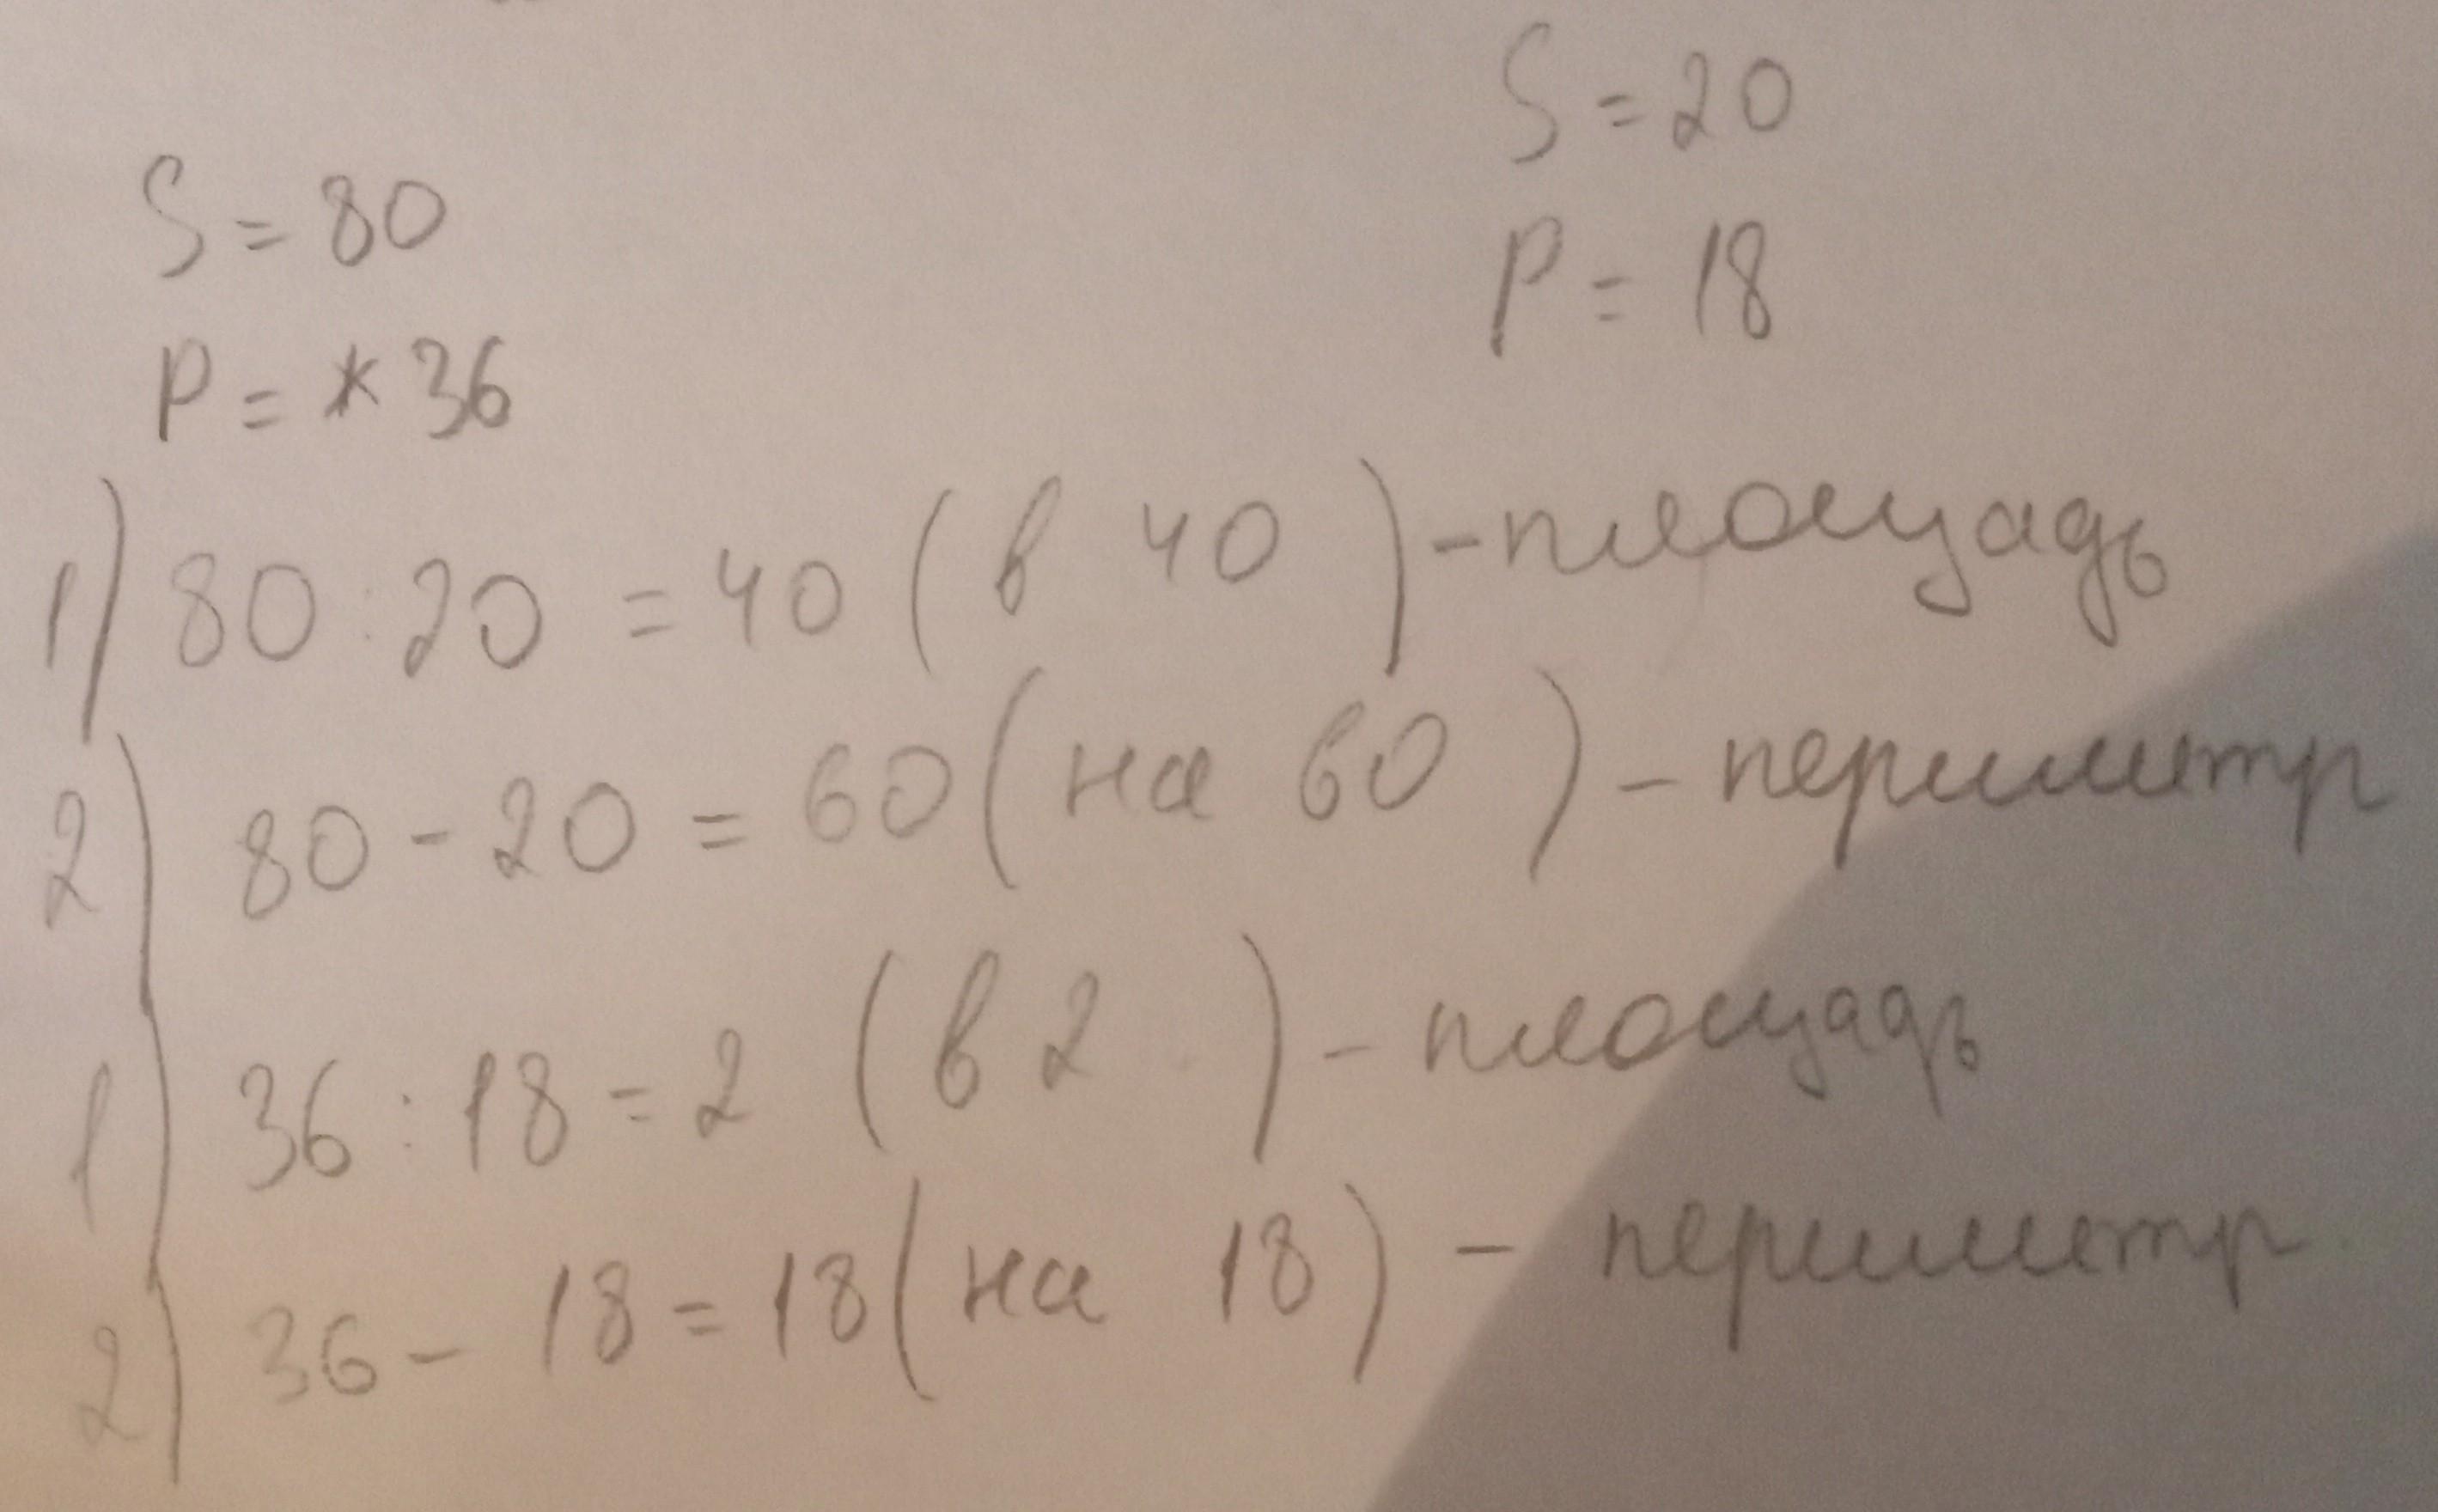 S = 80
P = * 36
S = 20
P = 18
1) 80 : 20 = 40 (в 40 ) - площадь
2) 80 - 20 = 60 (на 60 ) - периметр
1) 36 : 18 = 2 (в 2 ) - площадь
2) 36 - 18 = 18 (на 18) - периметр